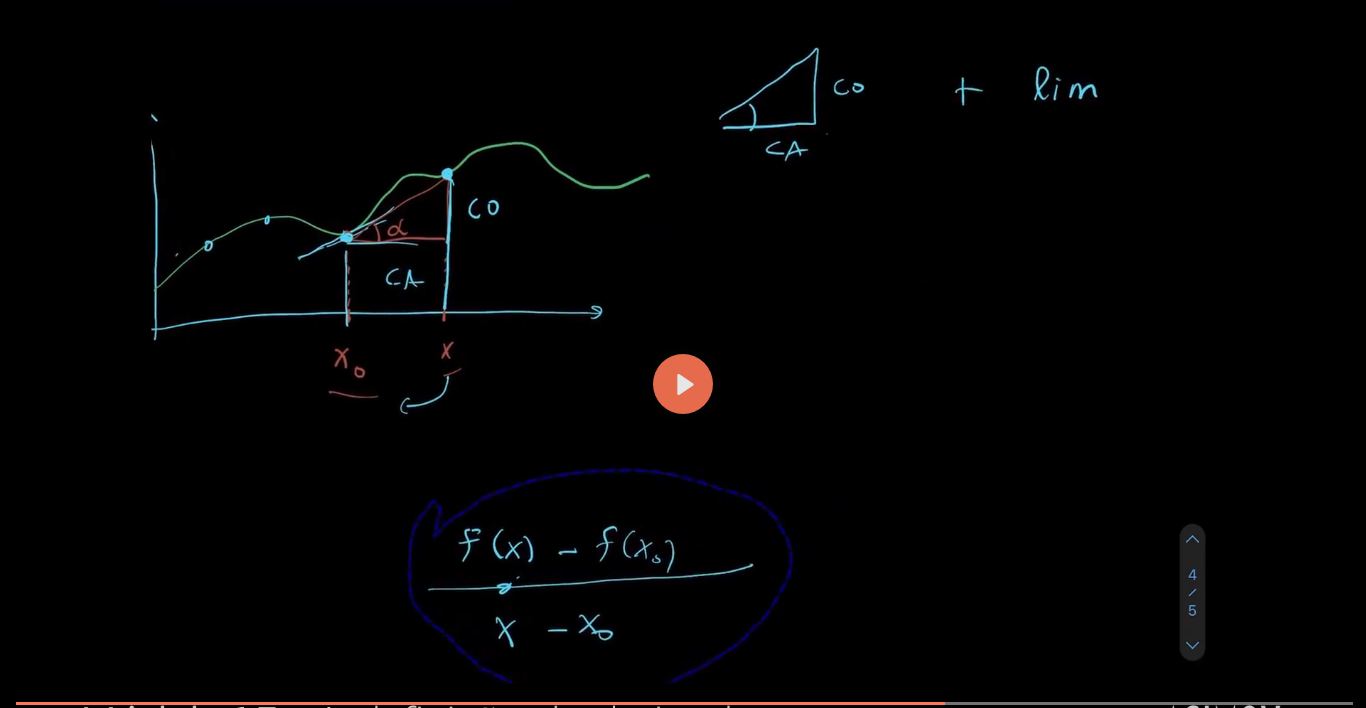 CO + lim
CA
CO
α
CA
x₀ x
f(x) - f(x₀)
x - x₀
4
/
5